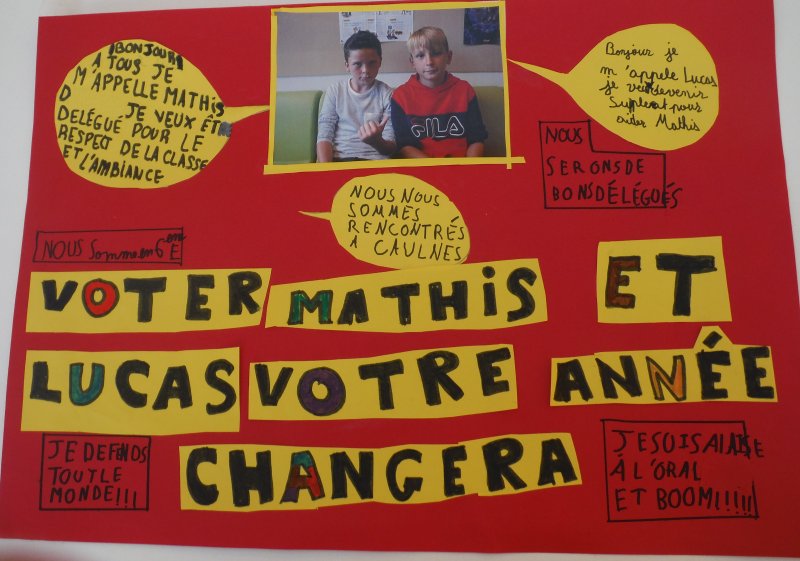 BONJOUR
A TOUS JE
M'APPELLE MATHIS
JE VEUX ÊTRE
DELÉGUÉ POUR LE
RESPECT DE LA CLASSE
ET L'AMBIANCE
FILA
Bonjour je
m'appelle Lucas
je veux devenir
Supleent pour
aider Mathis
NOUS
SERONS DE
BONS DÉLÉGUÉS
NOUS NOUS
SOMMES
RENCONTRÉS
A CAULNES
NOUS Somme en 6ème E
VOTER MATHIS ET
LUCAS VOTRE ANNÉE
CHANGERA
JE DEFENDS
TOUT LE
MONDE!!!
JE SUIS A L'AISE
À L'ORAL
ET BOOM!!!!!